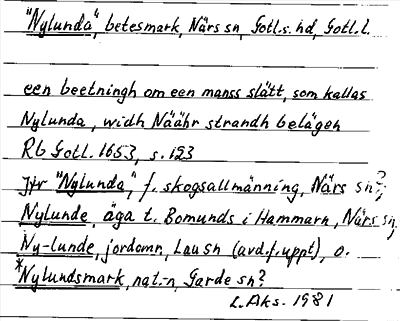 "Nylunda", betesmark, Närs sn, Gotl.s. hd, Gotl. l.
een beetningh om een manss slätt, som kallas
Nylunda, widh Näähr strandh belägen
Rb Gotl. 1653, s. 123
Jfr "Nylunda", f. skogsallmänning, Närs sn?;
Nylunde, äga t. Bomunds i Hammarn, Närs sn;
Ny-lunde, jordomr, Lau sn (avd. f. uppt), o.
*Nylundsmark, nat.-n, Garde sn?
L. Aks. 1981